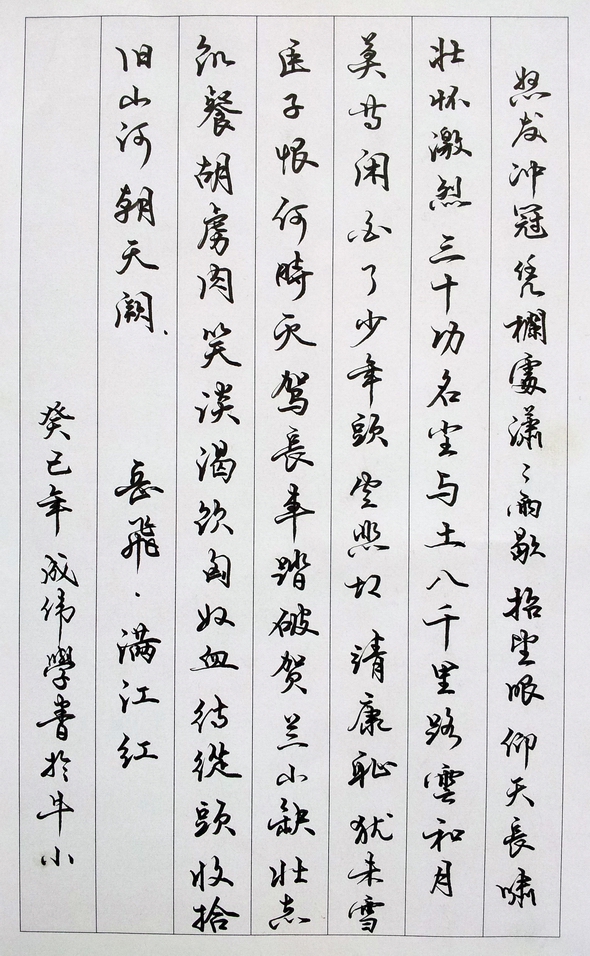 怒发冲冠凭欄處瀟々雨歇抬望眼仰天長嘯
壮怀激烈三十功名尘与土八千里路雲和月
莫等闲白了少年頭空悲切靖康恥犹未雪
臣子恨何時灭驾長車踏破贺兰山缺壮志
飢餐胡虏肉笑谈渴饮匈奴血待從頭收拾
旧山河朝天阙.
岳飛·满江红
癸巳年成伟學書於牛小